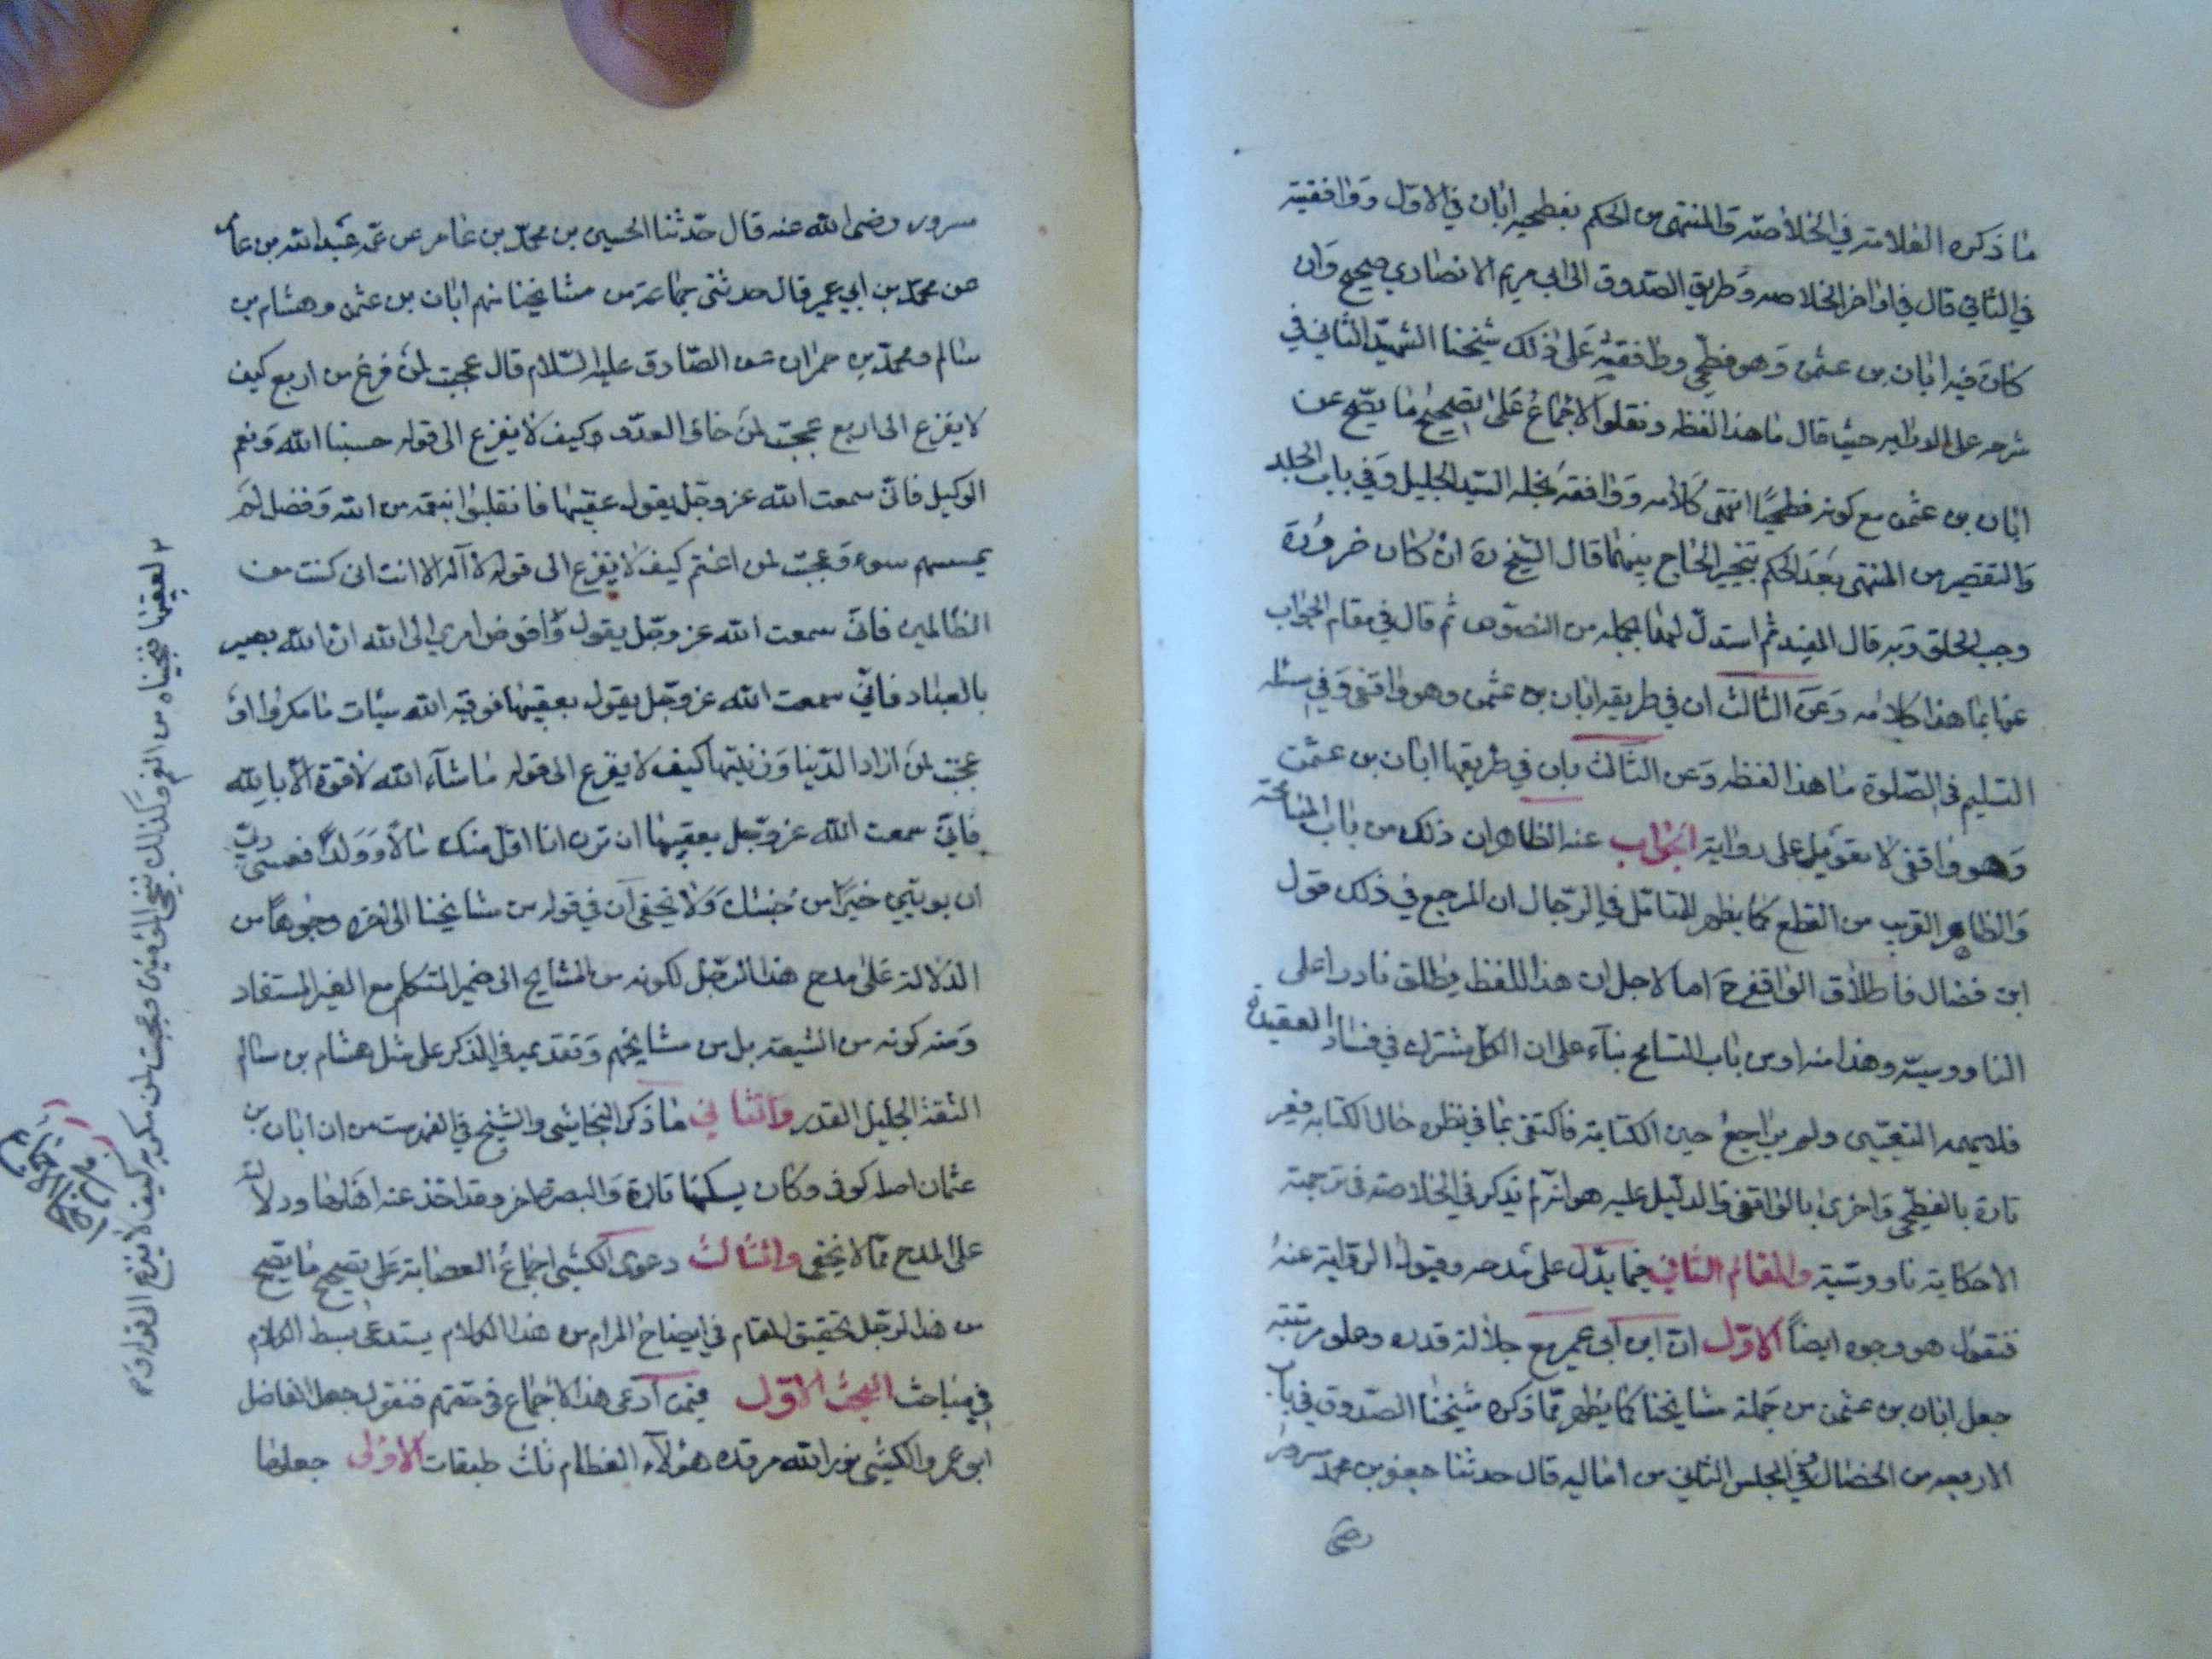 ما ذكره العلامة في الخلاصة والمنتهى من الحكم بفطحية ابان في الاول وواقفيته
في الثاني قال في اواخر الخلاصه وطريق الصدوق الى ابي مريم الانصاري صحيح وان
كان فيه ابان بن عثمن وهو فطحي ووافقه على ذلك شيخنا الشهيد الثاني في
شرحه على الدرايه حيث قال ما هذا لفظه ونقلوا الاجماع على تصحيح ما يصح عن
ابان بن عثمن مع كونه فطحيا انتهى كلامه ووافقه نجله السيد الجليل وفي باب الحلق
والتقصير من المنتهى بعد الحكم بتخيير الحاج بينهما قال الشيخ ره ان كان ضرورة
وجب الحلق وبه قال المفيد ثم استدل لهما بجمله من النصوص ثم قال في مقام الجواب
عنها بما هذا كلامه وعن الثالث ان في طريقه ابان بن عثمن وهو واقفي وفي مسئله
التسليم في الصلوة ما هذا لفظه وعن الثالث بان في طريقها ابان بن عثمن
وهو واقفي لا تعويل على رواية الجواب عنه الظاهر ان ذلك من باب المسامحة
والظاهر القريب من القطع كما يظهر للمتامل في الرجال ان المرجع في ذلك قول
ابن فضال فاطلاق الواقفي ح اما لاجل ان هذا اللفظ يطلق نادرا على
الناووسية وهذا منه او من باب التسامح بناء على ان الكل مشترك في فساد العقيدة
فلم يهمه التعيين ولم يراجع حين الكتابة فاكتفى بما في نظره حال الكتابه فعبر
تارة بالفطحي واخرى بالواقفي والدليل عليه هو انه لم يذكر في الخلاصة في ترجمته
الا حكاية ناووسيته والمقام الثاني فيما يدل على مدحه وقبول الرواية عنه
فنقول هو وجوه ايضا الاول ان ابن ابي عمير مع جلالة قدره وعلو مرتبته
جعل ابان بن عثمن من جملة مشايخنا كما يظهر مما ذكره شيخنا الصدوق في باب
الاربعه من الخصال وفي المجلس الثاني من اماليه قال حدثنا جعفر بن محمد بن مسرور
رضي
مسرور رضى الله عنه قال حدثنا الحسين بن محمد بن عامر عن عمه عبد الله بن عامر
عن محمد بن ابي عمير قال حدثني جماعة من مشايخنا منهم ابان بن عثمن وهشام بن
سالم ومحمد بن حمران عن الصادق عليه السلام قال عجبت لمن فزع من اربع كيف
لا يفزع الى اربع عجبت لمن خاف العدو وكيف لا يفزع الى قوله حسبنا الله ونعم
الوكيل فاني سمعت الله عز وجل يقول عقيبها فانقلبوا بنعمة من الله وفضل لم
يمسسهم سوء وعجبت لمن اغتم كيف لا يفزع الى قوله لا اله الا انت انى كنت من
الظالمين فانى سمعت الله عز وجل يقول وافوض امري الى الله ان الله بصير
بالعباد فاني سمعت الله عز وجل يقول بعقيبها فوقيه الله سيئات ما مكروا و
عجبت لمن اراد الدنيا وزينتها كيف لا يفزع الى قوله ما شآء الله لا قوة الا بالله
فاني سمعت الله عز وجل بعقيبها ان ترن انا اقل منك مالا وولدا فعسى ربي
ان يوتيني خيرا من جنتك ولا يخفى ان في قوله من مشايخنا الى اخره وجوها من
الدلالة على مدح هذا الرجل لكونه من المشايخ الى ضمير المتكلم مع الغير المستفاد
ومنه كونه من الشيعة بل من مشايخهم وتقديمه في الذكر على مثل هشام بن سالم
الثقة الجليل القدر والثاني ما ذكر النجاشي والشيخ في الفهرست من ان ابان بن
عثمان اصله كوفي وكان يسكنها تارة والبصرة اخر وقد اخذ عنه اهلها ودلالته
على المدح مما لا يخفى والثالث دعوى الكشي اجماع العصابة على تصحيح ما يصح
من هذا الرجل تحقيق المقام في ايضاح المرام من هذا الكلام يستدعي بسط الكلام
في مباحث البحث الاول فيمن ادعى هذا الاجماع في حقهم فنقول جعل الفاضل
ابو عمرو الكشي نور الله مرقده هولاء العظام ثلث طبقات الاولى جعلها
بعقيبها فنجيناه من الغم وكذلك ننجى المؤمنين وعجبت لمن مكر به كيف لا يفزع الى قوله و